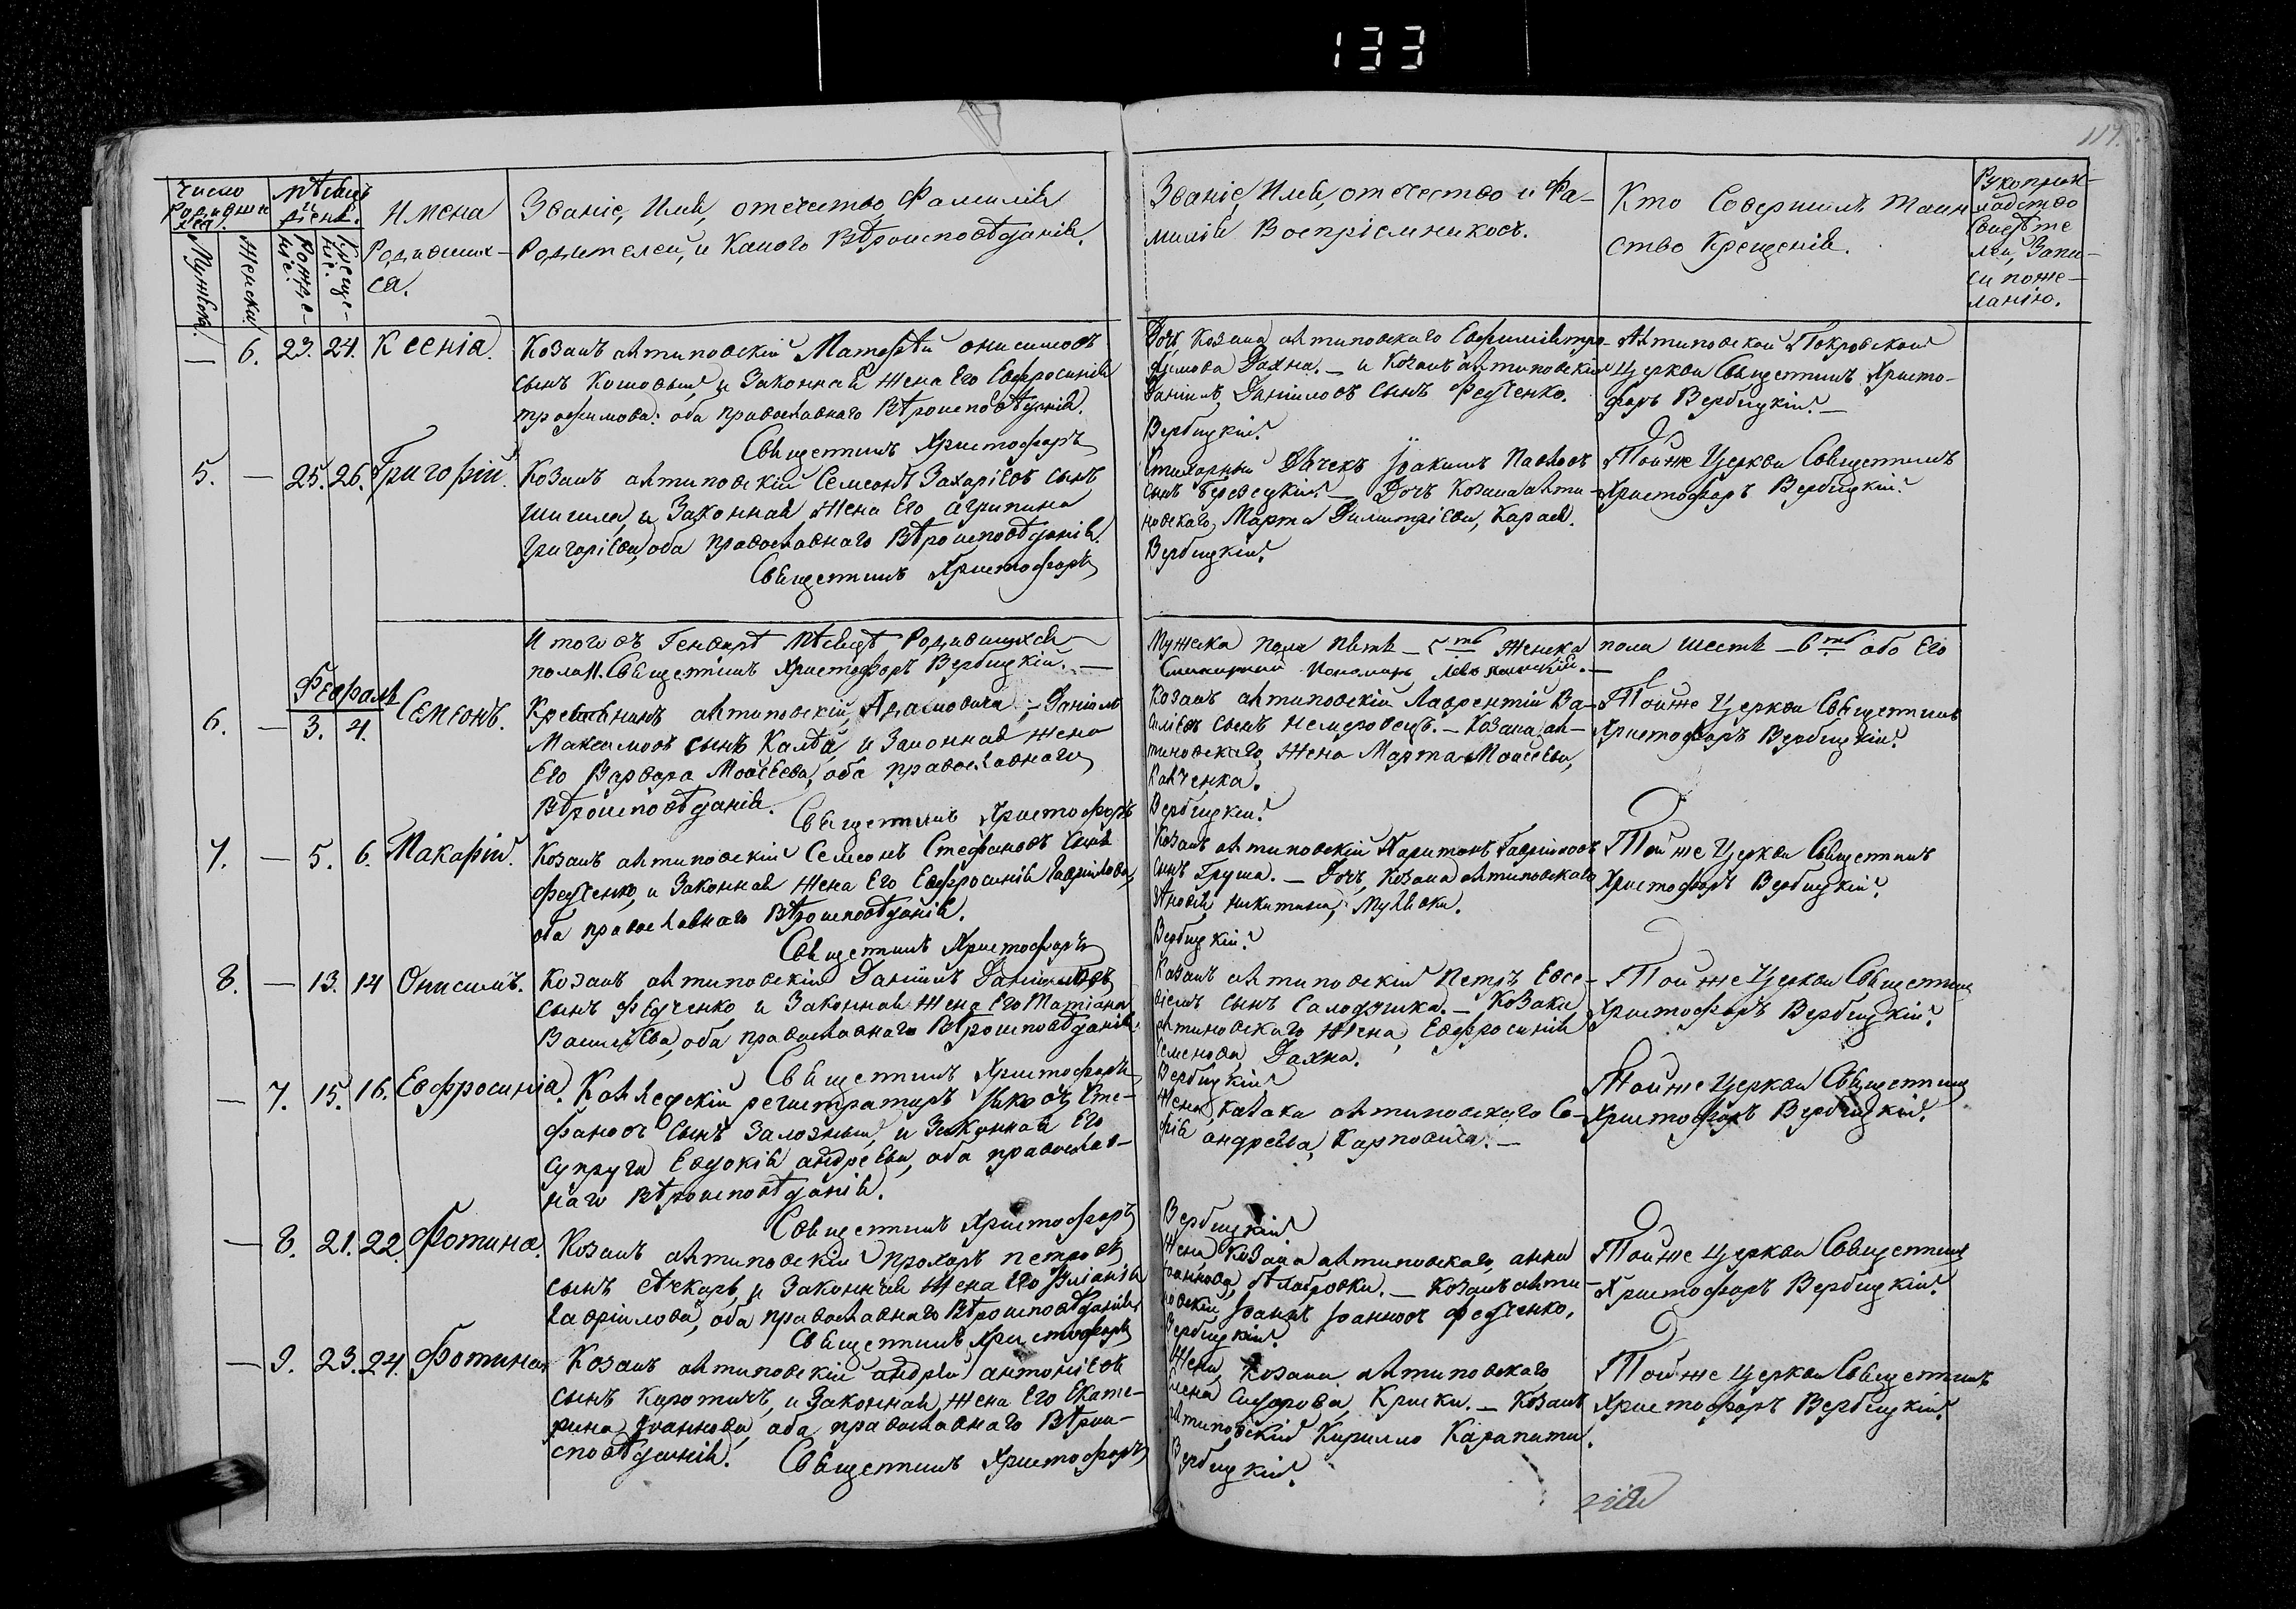 133
117.
Число Родившихся.
Мѣсяцъ и день.
Мужеска.
Женска.
Рожденіе.
Крещеніе.
Имена Родившихся.
Званіе, Имя, отечество, Фамилія
Родителей, и Какого Вѣроисповѣданія.
Званіе, Имя, отечество и Фа-
милія Воспріемниковъ.
Кто Совершилъ Таин
ство Крещенія.
Рукоприк-
ладство
Свидѣте
лей, Запи-
си поже-
ланію.
— 6. 23. 24. Ксенія.
Козакъ антиповскій Матфѣй онисимовъ
сынъ Кошовый, и Законная Жена Его Евфросинія
трофимова: оба православнаго Вѣроисповѣданія.
Священникъ Христофоръ
Дочь Козака антиповскаго Евфимія тро-
фимова Дахна. — и Козакъ антиповскій
Даніилъ Даніиловъ Сынъ Федченко.
Вербицкій.
Антиповской Покровской
Церкви Священникъ Христо-
форъ Вербицкій. —
5. — 25. 26. Григорій.
Козакъ антиповскій Семеонъ Захаріевъ сынъ
шигила, и Законная Жена Его Агрипина
Григоріева, оба православнаго Вѣроисповѣданія.
Священникъ Христофоръ
Стихарный Дячекъ Іоакимъ Павловъ
сынъ — Дочь Козака анти-
повскаго, Марта Димитріева, Карая.
Вербицкій.
Тойже Церкви Священникъ
Христофоръ Вербицкій.
Итого въ Генварѣ Мѣсяцѣ Родившихся
пола 11. Священникъ Христофоръ Вербицкій. —
Мужеска пола пять — 5ть Женска
Пономарь
пола шесть — 6ть обо Его
Февраля
6. — 3. 4. Семеонъ.
антиповскій, — Даніилъ
Максимовъ сынъ Калѣй, и Законная жена
Его Варвара Моисеева, оба православнаго
Вѣроисповѣданія.
Священникъ Христофоръ
Козакъ антиповскій Лаврентій Ва-
силіевъ сынъ Немировецъ. — Козака ан-
типовскаго, Жена Марта Моисеева,
Вербицкій.
Тойже Церкви Священникъ
Христофоръ Вербицкій.
7. — 5. 6. Макарій.
Козакъ антиповскій Семеонъ Стефановъ сынъ
федченко, и Законная Жена Его Евфросинія Гаврилова,
оба православнаго Вѣроисповѣданія.
Священникъ Христофоръ
Козакъ антиповскій Харитонъ Гавриловъ
сынъ Груша. — Дочь, Козака антиповскаго
Никитина,
Вербицкій.
Тойже Церкви Священникъ
Христофоръ Вербицкій.
8. — 13. 14 Онисимъ.
Козакъ антиповскій Даніилъ Даніиловъ
сынъ Федченко и Законная Жена Его Татіана
Василіева, оба православнаго Вѣроисповѣданія.
Священникъ Христофоръ
Козакъ антиповскій Петръ Евсе-
віевъ сынъ — Козака
антиповскаго Жена, Евфросинія
Семенова, Дахна.
Вербицкій
Тойже Церкви Священникъ
Христофоръ Вербицкій.
— 7. 15. 16. Евфросинія.
Коллежскій регистраторъ Яковъ Сте-
фановъ Сынъ Залозный, и Законная Его
Супруга Евдокія андреева, оба православ-
наго Вѣроисповѣданія.
Священникъ Христофоръ
Жена, Козака антиповскаго Со-
фія андреева, Карповича. —
Вербицкій
Тойже Церкви Священникъ
Христофоръ Вербицкій.
— 8. 21. 22. Фотина.
Козакъ антиповскій Прохоръ петровъ
сынъ и Законная Жена Его Іуліанія
Гавріилова, оба православнаго Вѣроисповѣданія.
Священникъ Христофоръ
Жена Козака антиповскаго, анна
Іоаннова, — Козакъ анти-
повскій Іоаннъ Іоанновъ Федченко.
Вербицкій.
Тойже Церкви Священникъ
Христофоръ Вербицкій.
— 9. 23. 24. Фотина.
Козакъ антиповскій андрей антоніевъ
сынъ и Законная Жена Его Екате-
рина Іоаннова, оба православнаго Вѣрои-
сповѣданія.
Священникъ Христофоръ
Жена, Козака антиповскаго
Сидорова, — Козакъ
антиповскій Кирилло
Вербицкій.
Тойже Церкви Священникъ
Христофоръ Вербицкій.